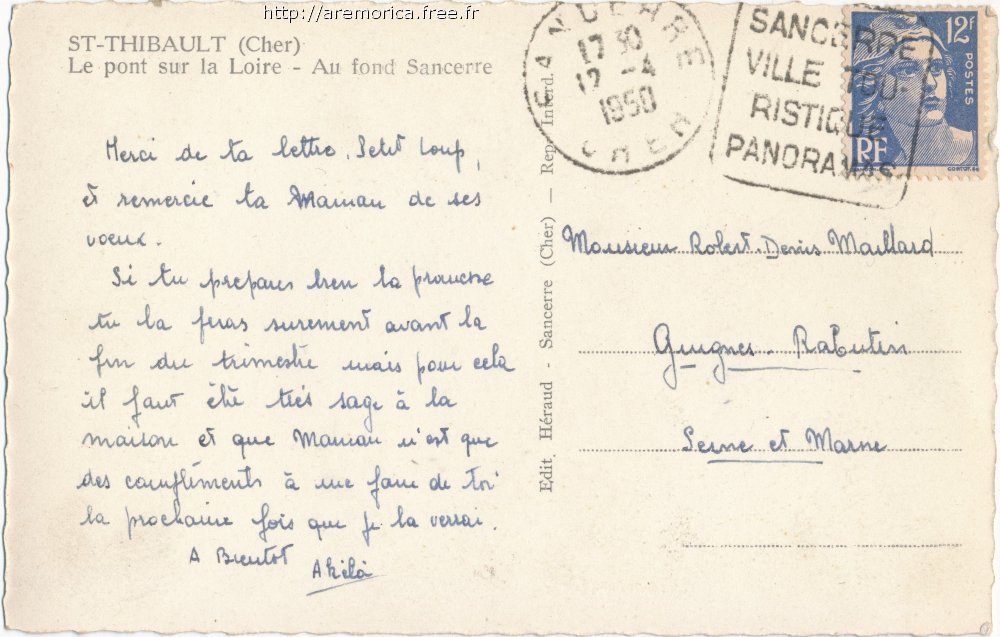 http://aremorica.free.fr
ST-THIBAULT (Cher)
Le pont sur la Loire - Au fond Sancerre
Merci de ta lettre, Petit Loup,
et remercie ta Maman de ses
voeux.
Si tu prepares bien la promesse
tu la feras surement avant la
fin du trimestre mais pour cela
il faut être très sage à la
maison et que Maman n'est que
des compliments à me faire de toi
la prochaine fois que je la verrai.
A Bientot
Akéla
Edit. Héraud - Sancerre (Cher) — Rep. Interd.
SANCERRE
CHER
17 30
12 -4
1950
SANCERRE
VILLE TOU-
RISTIQUE
PANORAMAS
12f
POSTES
RF
Monsieur Robert-Denis Maillard
Guignes-Rabutin
Seine et Marne